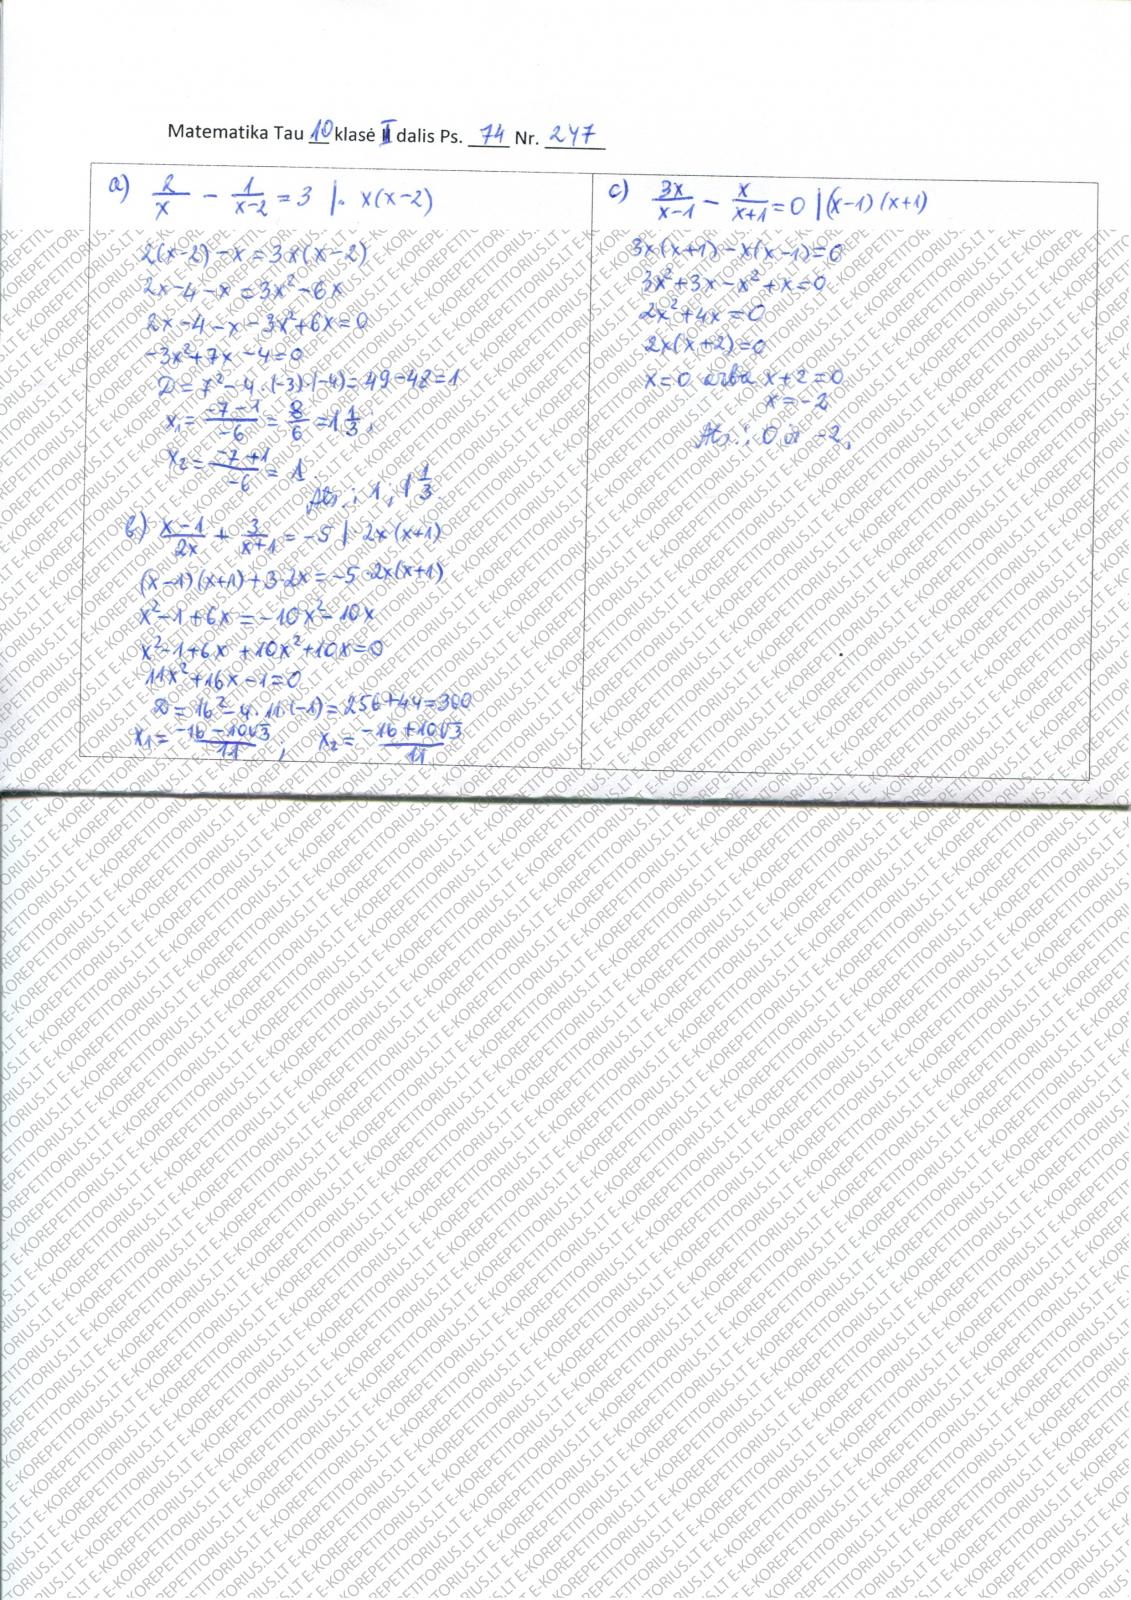 Matematika Tau 10 klasė II dalis Ps. 74 Nr. 247
a) 2/x - 1/(x-2) = 3 |· x(x-2)
2(x-2) - x = 3x(x-2)
2x - 4 - x = 3x² - 6x
2x - 4 - x - 3x² + 6x = 0
-3x² + 7x - 4 = 0
D = 7² - 4·(-3)·(-4) = 49 - 48 = 1
x₁ = (-7-1)/(-6) = 8/6 = 1 1/3;
x₂ = (-7+1)/(-6) = 1
Ats.: 1; 1 1/3.
b) (x-1)/2x + 3/(x+1) = -5 | 2x(x+1)
(x-1)(x+1) + 3·2x = -5·2x(x+1)
x² - 1 + 6x = -10x² - 10x
x² - 1 + 6x + 10x² + 10x = 0
11x² + 16x - 1 = 0
D = 16² - 4·11·(-1) = 256 + 44 = 300
x₁ = (-16 - 10√3)/11; x₂ = (-16 + 10√3)/11
c) 3x/(x-1) - x/(x+1) = 0 | (x-1)(x+1)
3x(x+1) - x(x-1) = 0
3x² + 3x - x² + x = 0
2x² + 4x = 0
2x(x+2) = 0
x = 0 arba x + 2 = 0
x = -2
Ats.: 0 ir -2.
E-KOREPETITORIUS.LT